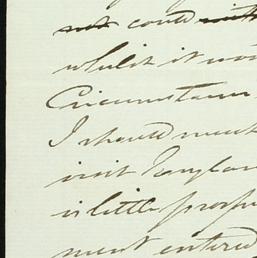 not could with
whilst it wo
Circumstan
I should ment
visit England
is little prosp
ment entered